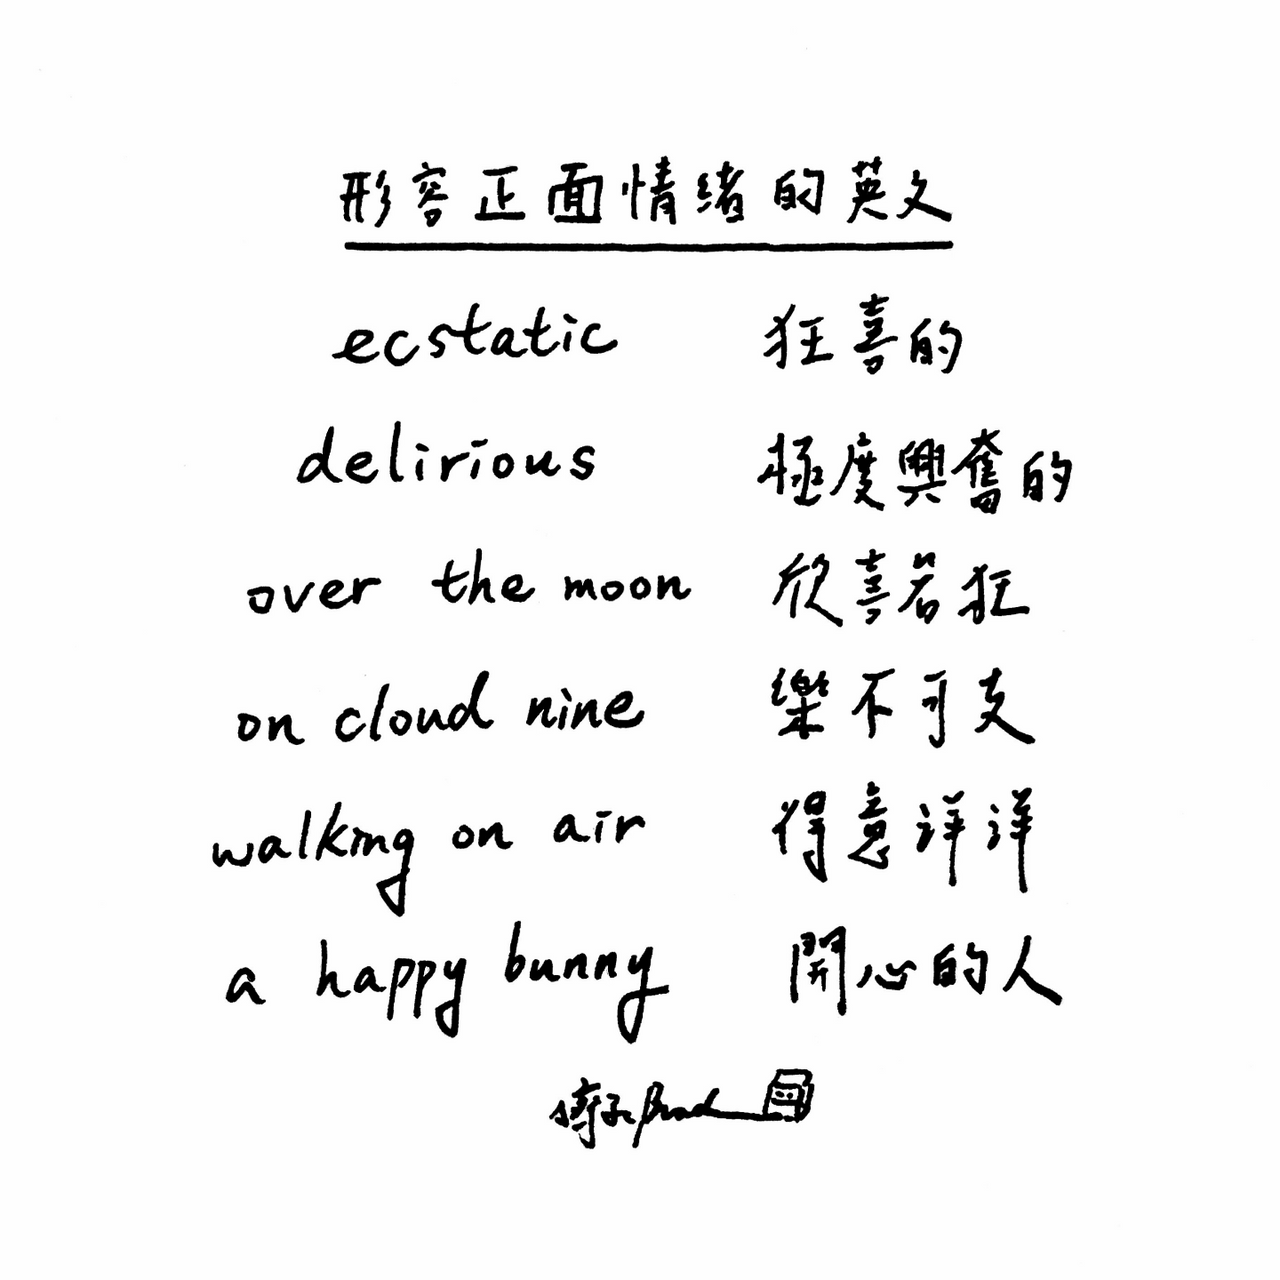 形容正面情緒的英文
ecstatic 狂喜的
delirious 極度興奮的
over the moon 欣喜若狂
on cloud nine 樂不可支
walking on air 得意洋洋
a happy bunny 開心的人
Brad